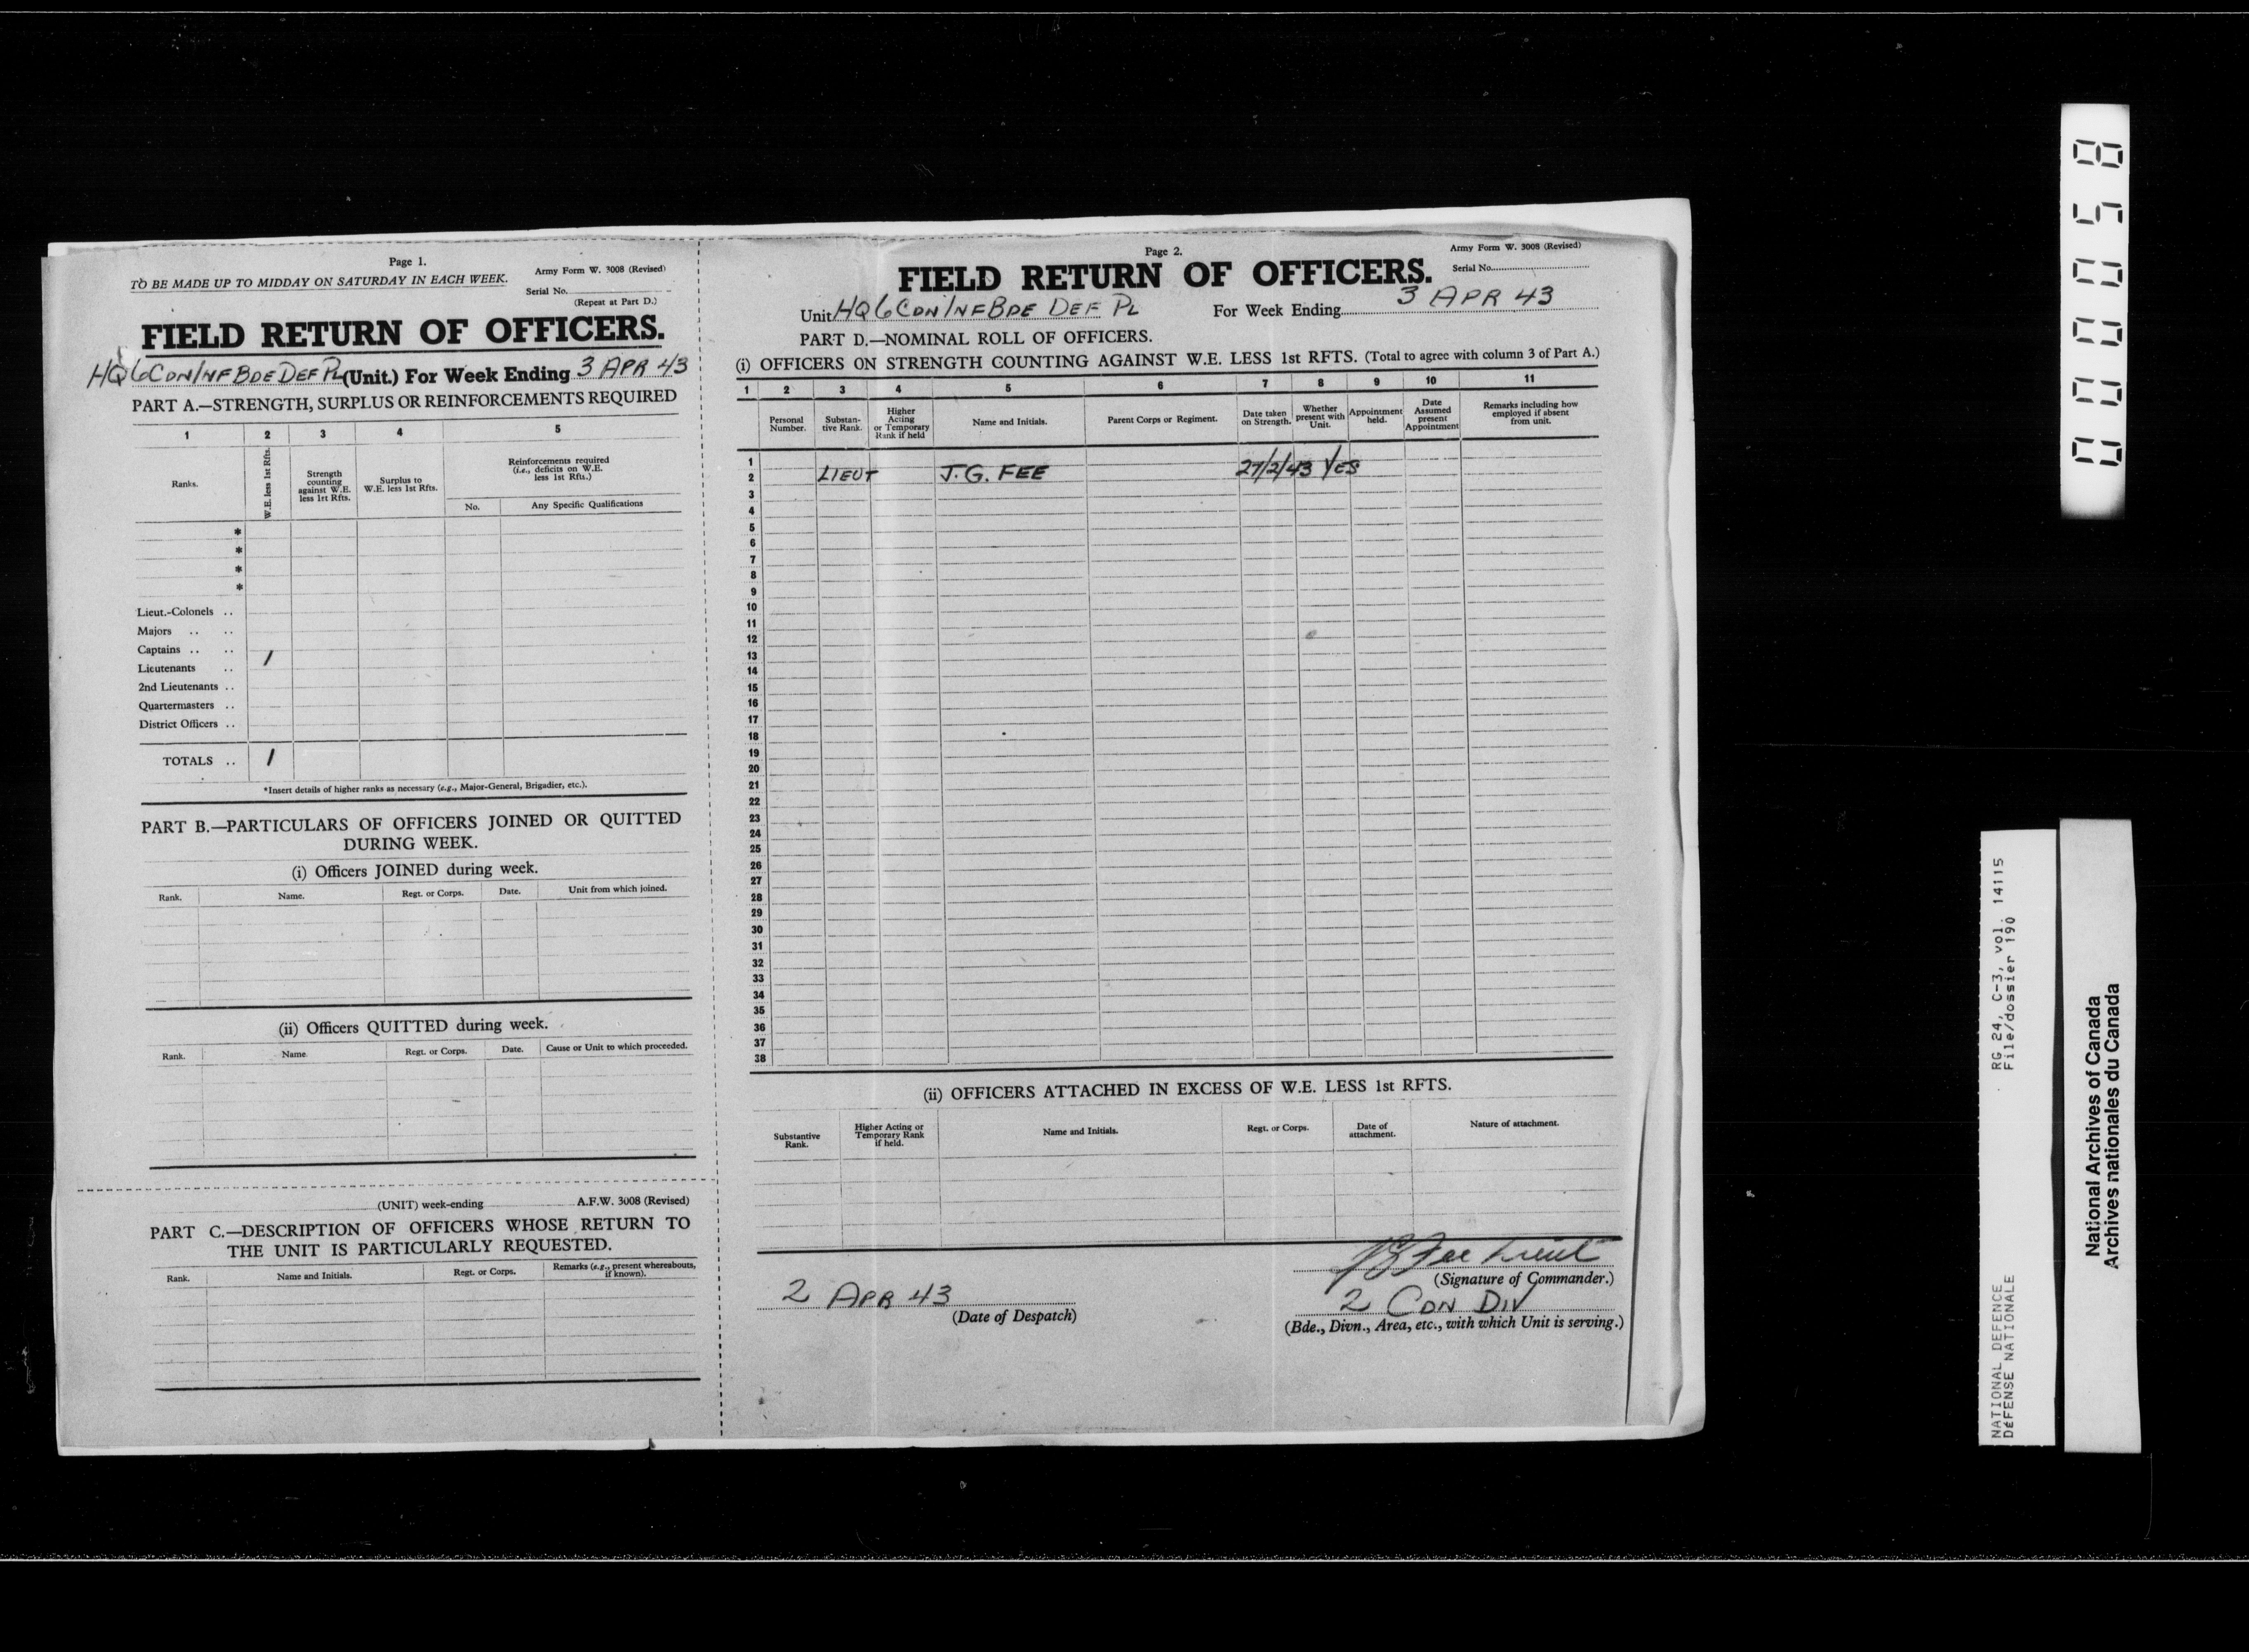 Page 1.
TO BE MADE UP TO MIDDAY ON SATURDAY IN EACH WEEK.
Army Form W. 3008 (Revised)
Serial No.
(Repeat at Part D.)
FIELD RETURN OF OFFICERS.
HQ 6 CDN INF BDE DEF PL (Unit.) For Week Ending 3 APR 43
PART A.—STRENGTH, SURPLUS OR REINFORCEMENTS REQUIRED
1 2 3 4 5
Ranks.
W.E. less 1st Rfts.
Strength counting against W.E. less 1st Rfts.
Surplus to W.E. less 1st Rfts.
Reinforcements required (i.e., deficits on W.E. less 1st Rfts.)
No. Any Specific Qualifications
*
*
*
*
Lieut.-Colonels ..
Majors .. ..
Captains .. ..
Lieutenants .. 1
2nd Lieutenants ..
Quartermasters ..
District Officers ..
TOTALS .. 1
*Insert details of higher ranks as necessary (e.g., Major-General, Brigadier, etc.).
PART B.—PARTICULARS OF OFFICERS JOINED OR QUITTED
DURING WEEK.
(i) Officers JOINED during week.
Rank. Name. Regt. or Corps. Date. Unit from which joined.
(ii) Officers QUITTED during week.
Rank. Name Regt. or Corps. Date. Cause or Unit to which proceeded.
(UNIT) week-ending A.F.W. 3008 (Revised)
PART C.—DESCRIPTION OF OFFICERS WHOSE RETURN TO
THE UNIT IS PARTICULARLY REQUESTED.
Rank. Name and Initials. Regt. or Corps. Remarks (e.g., present whereabouts, if known).
Page 2.
Army Form W. 3008 (Revised)
Serial No.
FIELD RETURN OF OFFICERS.
Unit HQ 6 CDN INF BDE DEF PL For Week Ending 3 APR 43
PART D.—NOMINAL ROLL OF OFFICERS.
(i) OFFICERS ON STRENGTH COUNTING AGAINST W.E. LESS 1st RFTS. (Total to agree with column 3 of Part A.)
1 2 3 4 5 6 7 8 9 10 11
Personal Number.
Substantive Rank.
Higher Acting or Temporary Rank if held
Name and Initials.
Parent Corps or Regiment.
Date taken on Strength.
Whether present with Unit.
Appointment held.
Date Assumed present Appointment
Remarks including how employed if absent from unit.
1
2 LIEUT J. G. FEE 27/2/43 YES
3
4
5
6
7
8
9
10
11
12
13
14
15
16
17
18
19
20
21
22
23
24
25
26
27
28
29
30
31
32
33
34
35
36
37
38
(ii) OFFICERS ATTACHED IN EXCESS OF W.E. LESS 1st RFTS.
Substantive Rank.
Higher Acting or Temporary Rank if held.
Name and Initials.
Regt. or Corps.
Date of attachment.
Nature of attachment.
JG Fee Lieut
(Signature of Commander.)
2 APR 43
(Date of Despatch)
2 CDN DIV
(Bde., Divn., Area, etc., with which Unit is serving.)
000058
NATIONAL DEFENCE RG 24, C-3, vol. 14115
DéFENSE NATIONALE File/dossier 190
National Archives of Canada
Archives nationales du Canada